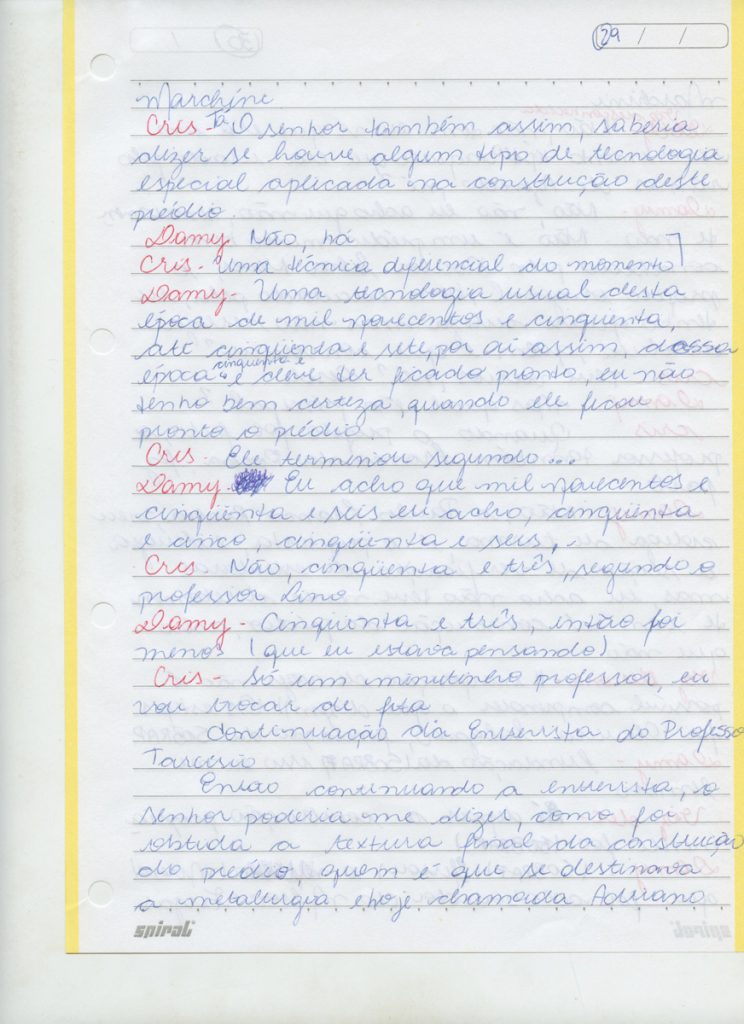 29 / /
Marchine.
Cris - Tá O senhor também assim, saberia
dizer se houve algum tipo de tecnologia
especial aplicada na construção deste
prédio.
Damy. Não, há
Cris - Uma técnica diferencial do momento
Damy - Uma tecnologia usual desta
época de mil novecentos e cinquenta,
até cinqüenta e sete, por aí assim, dessa
época cinquenta e
e deve ter ficado pronto, eu não
tenho bem certeza, quando ele ficou
pronto o prédio.
Cris - Ele terminou segundo...
Damy - Eu acho que mil novecentos e
cinqüenta e seis eu acho, cinqüenta
e cinco, cinqüenta e seis,..
Cris Não, cinqüenta e três, segundo o
professor Lino
Damy - Cinqüenta e três, então foi
menos (que eu estava pensando)
Cris - Só um minutinho professor, eu
vou trocar de fita
Continuação da Entrevista do Professo
Tarcisio
Então continuando a entrevista, o
senhor poderia me dizer, como foi
obtida a textura final da construção
do prédio, quem é que se destinava
a metalurgia e hoje chamada Adriano
spiral